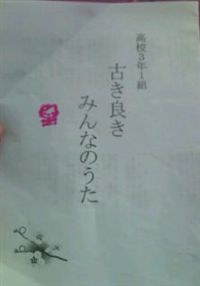 高校3年1組
古き良き
みんなのうた